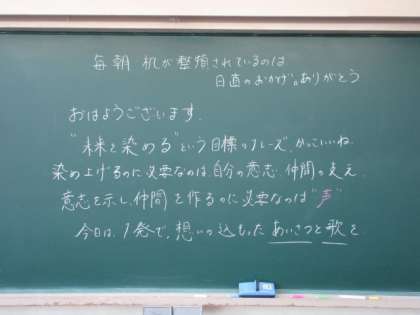 毎朝 机が整頓されているのは
日直のおかげ。ありがとう
おはようございます。
"未来を染める"という目標のフレーズ、かっこいいね。
染め上げるのに必要なのは、自分の意志、仲間の支え。
意志を示し、仲間を作るのに必要なのは"声"
今日は、1発で、想いの込もった あいさつと歌を